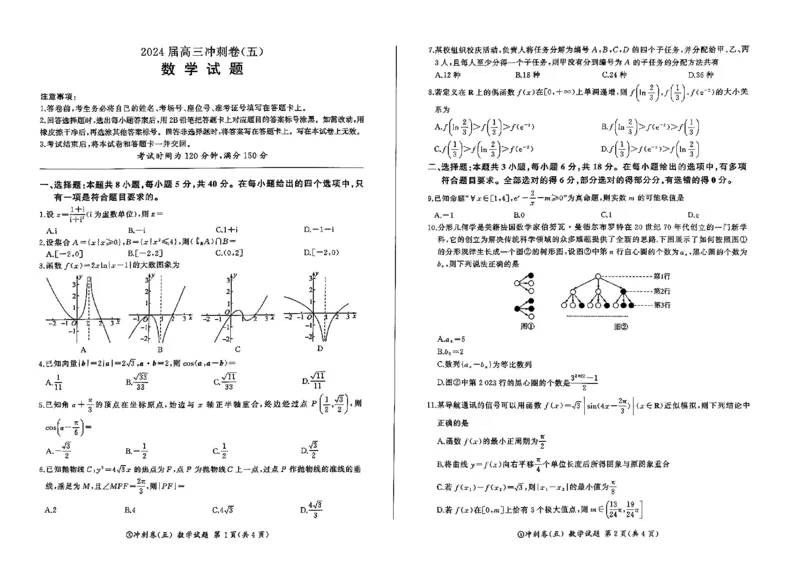 2024 届高三冲刺卷(五)
数 学 试 题
注意事项:
1.答卷前,考生务必将自己的姓名、考场号、座位号、准考证号填写在答题卡上。
2.回答选择题时,选出每小题答案后,用2B铅笔把答题卡上对应题目的答案标号涂黑。如需改动,用
橡皮擦干净后,再选涂其他答案标号。回答非选择题时,将答案写在答题卡上。写在本试卷上无效。
3.考试结束后,将本试卷和答题卡一并交回。
考试时间为 120 分钟,满分 150 分
一、选择题:本题共 8 小题,每小题 5 分,共 40 分。在每小题给出的四个选项中,只
有一项是符合题目要求的。
1.设 z=(1+i)/(i+i²)(i 为虚数单位),则 z=
A.i B.-i C.1+i D.-1-i
2.设集合 A={x|x≥0},B={x|x²≤4},则(∁RA)∩B=
A.[-2,0] B.[-2,2] C.(0,2] D.[-2,0)
3.函数 f(x)=2xln|x-1|的大致图象为
A B C D
4.已知向量|b|=2|a|=2√3,a·b=2,则 cos⟨a,a-b⟩=
A.1/11 B.√33/33 C.√11/33 D.√11/11
5.已知角 α+π/3 的顶点在坐标原点,始边与 x 轴正半轴重合,终边经过点 P(1/2,√3/2),则
cos(α-π/6)=
A.-√3/2 B.-1/2 C.1/2 D.√3/2
6.已知抛物线 C:y²=4√3x 的焦点为 F,点 P 为抛物线 C 上一点,过点 P 作抛物线的准线的垂
线,垂足为 M,且∠MPF=2π/3,则|PF|=
A.2 B.4 C.4√3 D.4√3/3
⑤冲刺卷(五) 数学试题 第 1 页(共 4 页)
7.某校组织校庆活动,负责人将任务分解为编号 A,B,C,D 的四个子任务,并分配给甲、乙、丙
3 人,且每人至少分得一个子任务,则甲没有分到编号为 A 的子任务的分配方法共有
A.12 种 B.18 种 C.24 种 D.36 种
8.若定义在 R 上的偶函数 f(x)在[0,+∞)上单调递增,则 f(ln 2/3),f(1/3),f(e⁻²)的大小关
系为
A.f(ln 2/3)>f(1/3)>f(e⁻²) B.f(ln 2/3)>f(e⁻²)>f(1/3)
C.f(1/3)>f(ln 2/3)>f(e⁻²) D.f(1/3)>f(e⁻²)>f(ln 2/3)
二、选择题:本题共 3 小题,每小题 6 分,共 18 分。在每小题给出的选项中,有多项
符合题目要求。全部选对的得 6 分,部分选对的得部分分,有选错的得 0 分。
9.已知命题“∀x∈[1,4],eˣ-2/x-m≥0”为真命题,则实数 m 的可能取值是
A.-1 B.0 C.1 D.e
10.分形几何学是美籍法国数学家伯努瓦·曼德尔布罗特在 20 世纪 70 年代创立的一门新学
科,它的创立为解决传统科学领域的众多难题提供了全新的思路.下图展示了如何按照图①
的分形规律生长成一个图②的树形图,设图②中第 n 行白心圆的个数为 aₙ,黑心圆的个数为
bₙ,则下列说法正确的是
第1行
第2行
第3行
图① 图②
A.a₃=5
B.b₂=2
C.数列{aₙ-bₙ}为等比数列
D.图②中第 2 023 行的黑心圆的个数是(3²⁰²²-1)/2
11.某导航通讯的信号可以用函数 f(x)=√3|sin(4x-2π/3)|(x∈R)近似模拟,则下列结论中
正确的是
A.函数 f(x)的最小正周期为π/2
B.将曲线 y=f(x)向右平移π/4个单位长度后所得图象与原图象重合
C.若 f(x₁)-f(x₂)=√3,则|x₁-x₂|的最小值为π/8
D.若 f(x)在[0,m]上恰有 3 个极大值点,则 m∈(13/24π,19/24π]
⑤冲刺卷(五) 数学试题 第 2 页(共 4 页)